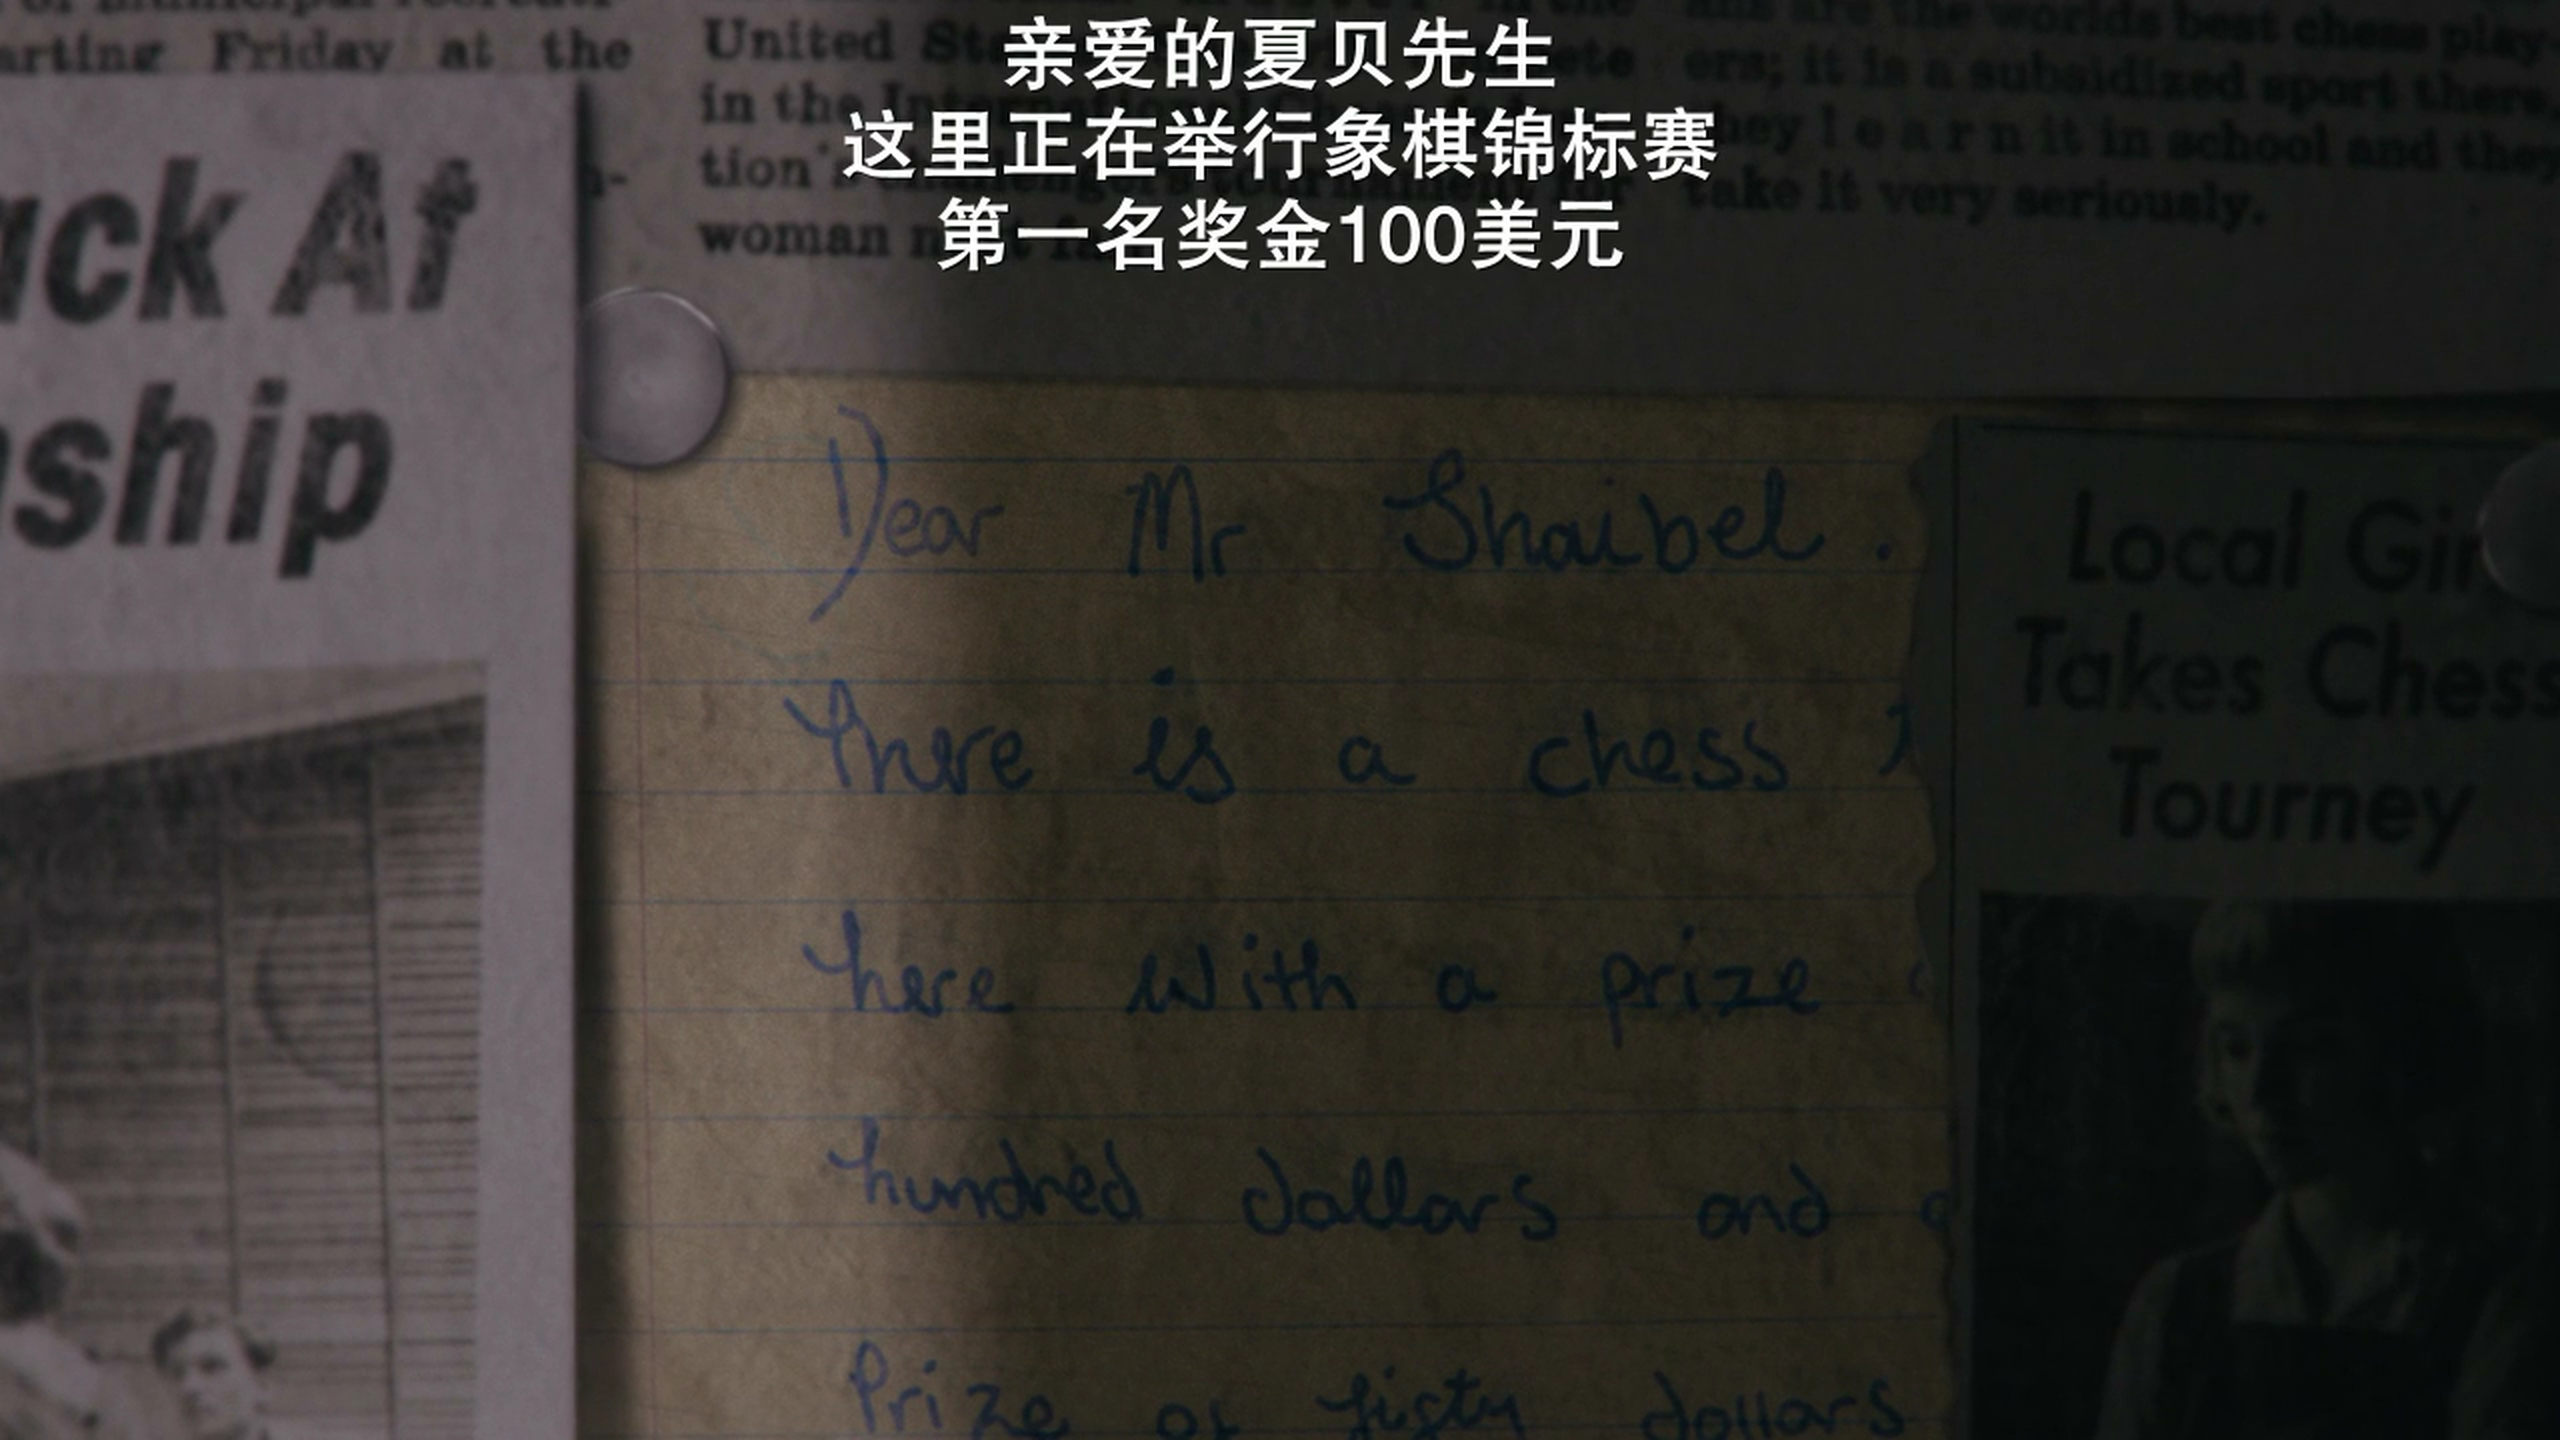 亲爱的夏贝先生
这里正在举行象棋锦标赛
第一名奖金100美元
arting Friday at the
ack At
nship
United
in the
tion's
woman
the worlds best chess play-
ers; it is a subsidized sport there,
they learn it in school and they
take it very seriously.
Dear Mr Shaibel.
There is a chess
here with a prize
hundred dollars and
Prize of fisty dollars
Local Gir
Takes Chess
Tourney